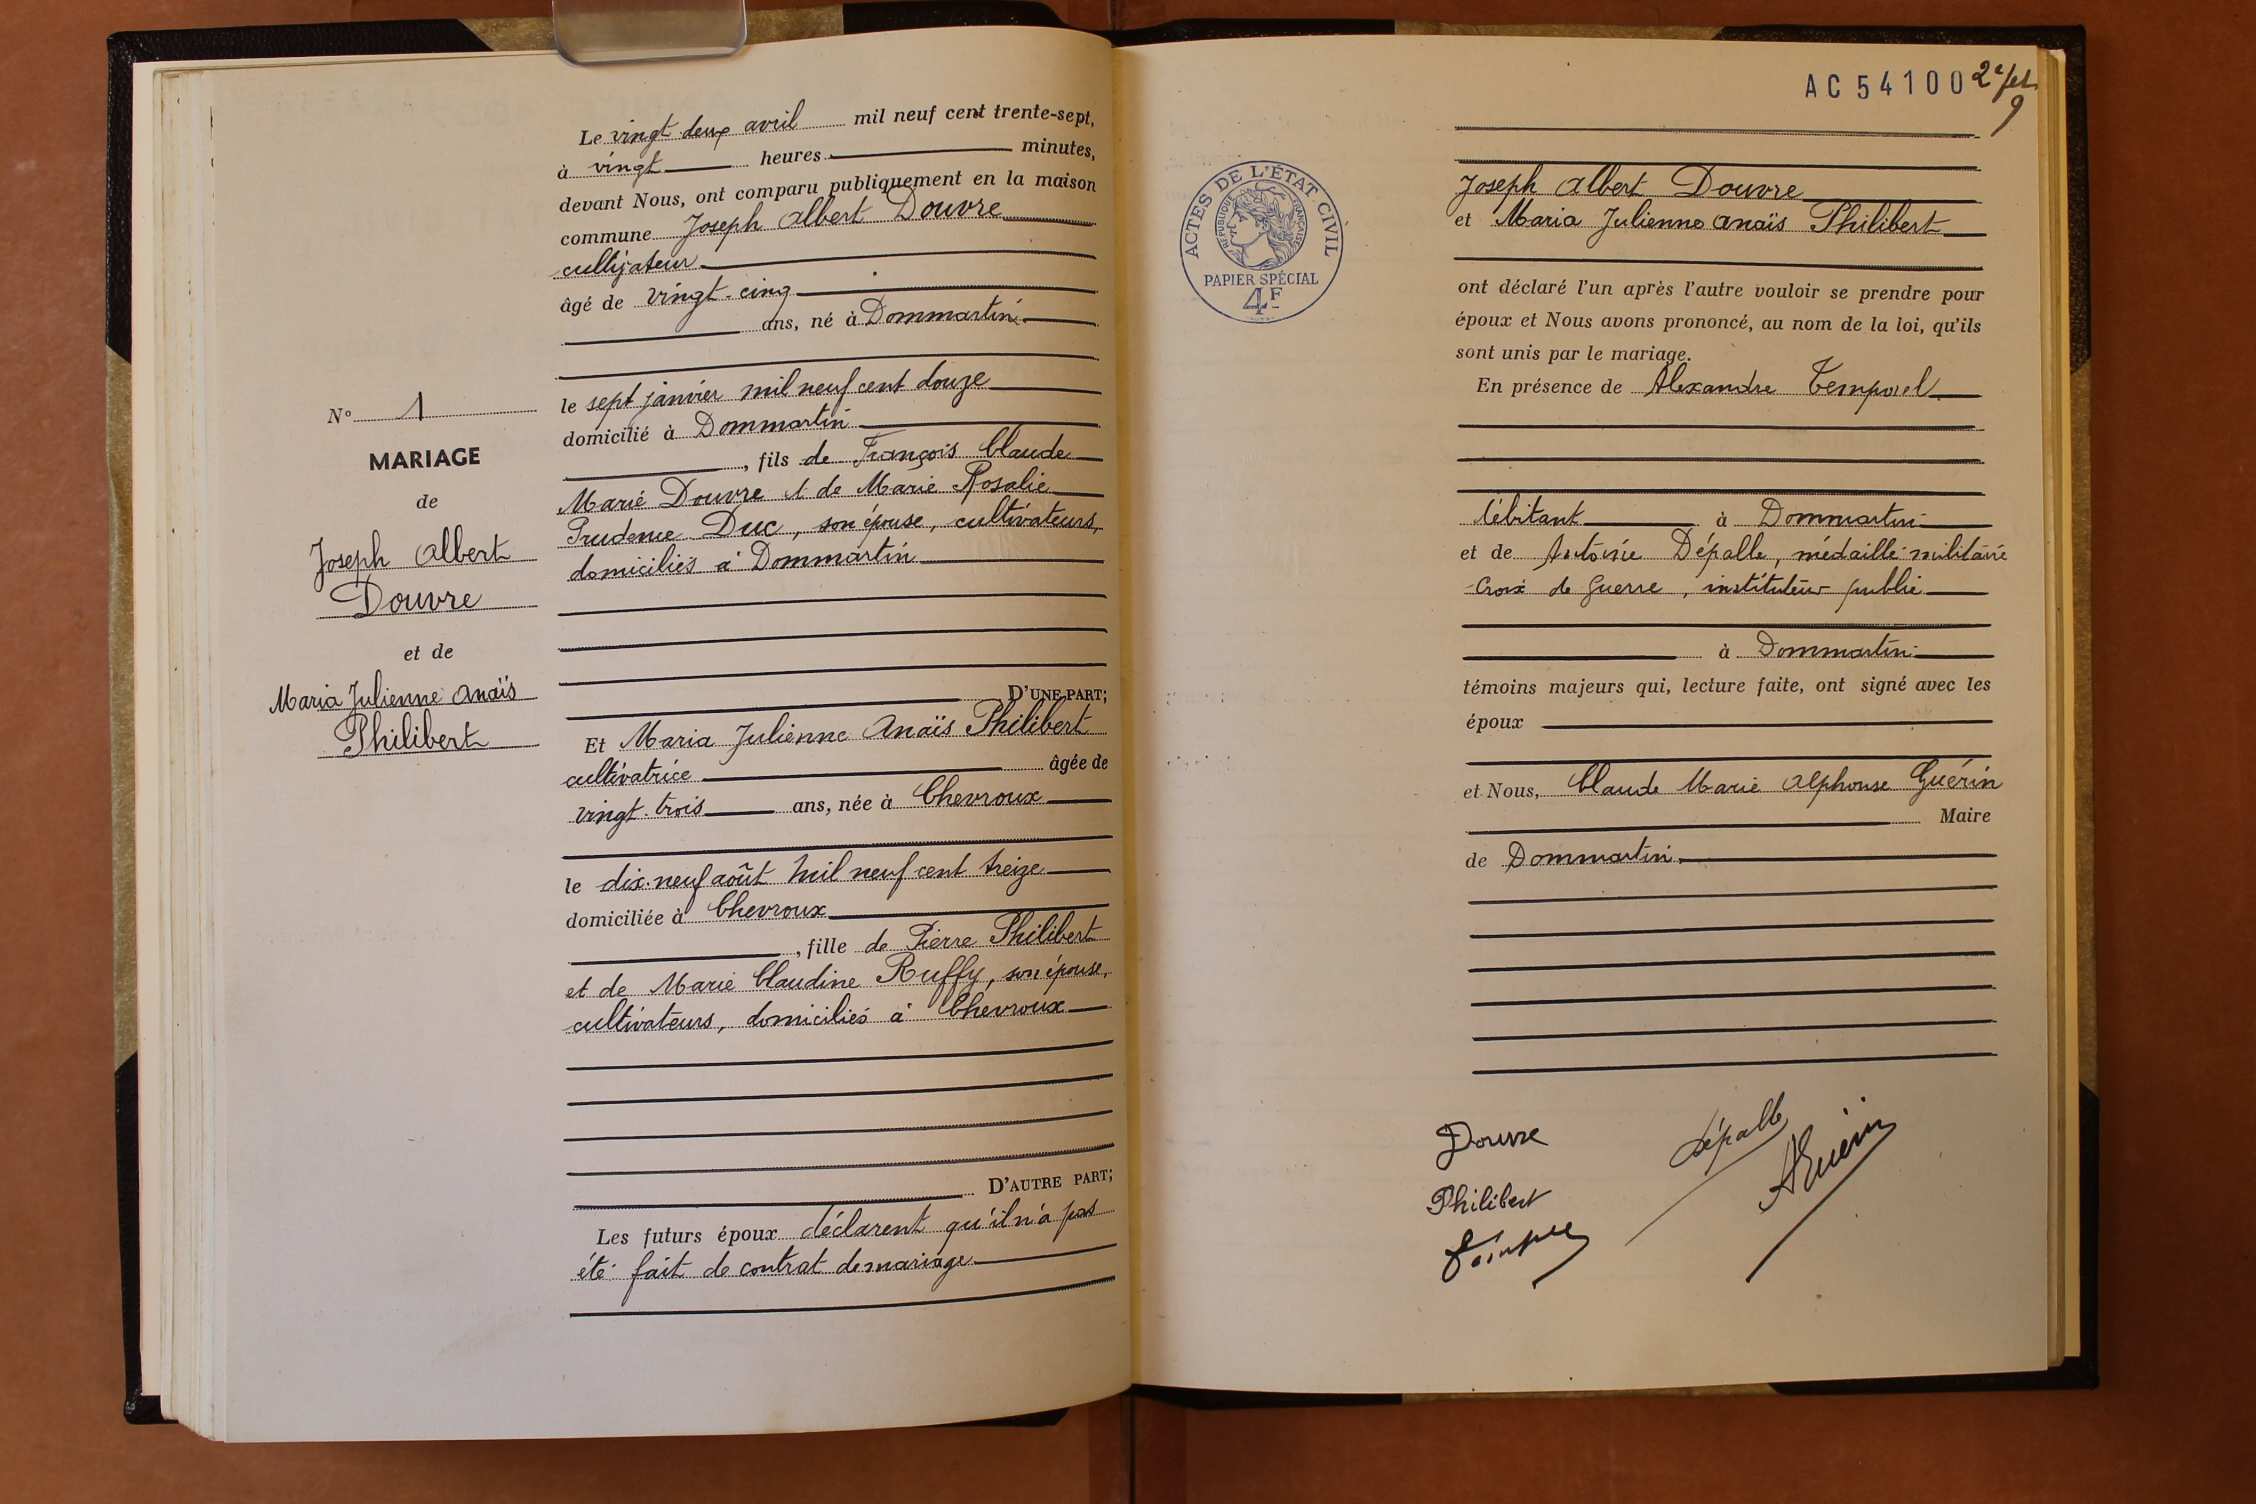 N° 1
MARIAGE
de
Joseph Albert
Douvre
et de
Maria Julienne Anaïs
Philibert
Le vingt deux avril mil neuf cent trente-sept,
à vingt heures minutes,
devant Nous, ont comparu publiquement en la maison
commune Joseph Albert Douvre
cultivateur
âgé de vingt-cinq
ans, né à Dommartin
le sept janvier mil neuf cent douze
domicilié à Dommartin
, fils de François Claude
Marie Douvre et de Marie Rosalie
Prudence Duc, son épouse, cultivateurs,
domiciliés à Dommartin
D'UNE PART;
Et Maria Julienne Anaïs Philibert
cultivatrice âgée de
vingt-trois ans, née à Chevroux
le dix-neuf août mil neuf cent treize
domiciliée à Chevroux
, fille de Pierre Philibert
et de Marie Claudine Ruffy, son épouse,
cultivateurs, domiciliés à Chevroux
D'AUTRE PART;
Les futurs époux déclarent qu'il n'a pas
été fait de contrat de mariage
AC 54100 2e
9
ACTES DE L'ÉTAT CIVIL
RÉPUBLIQUE FRANÇAISE
PAPIER SPÉCIAL
4F
Joseph Albert Douvre
et Maria Julienne Anaïs Philibert
ont déclaré l'un après l'autre vouloir se prendre pour
époux et Nous avons prononcé, au nom de la loi, qu'ils
sont unis par le mariage.
En présence de Alexandre Temporel
débitant à Dommartin
et de Antoine Dépalle, médaille militaire
croix de guerre, instituteur public
à Dommartin
témoins majeurs qui, lecture faite, ont signé avec les
époux
et Nous, Claude Marie Alphonse Guérin
Maire
de Dommartin
Douvre
Dépalle
AGuérin
Philibert